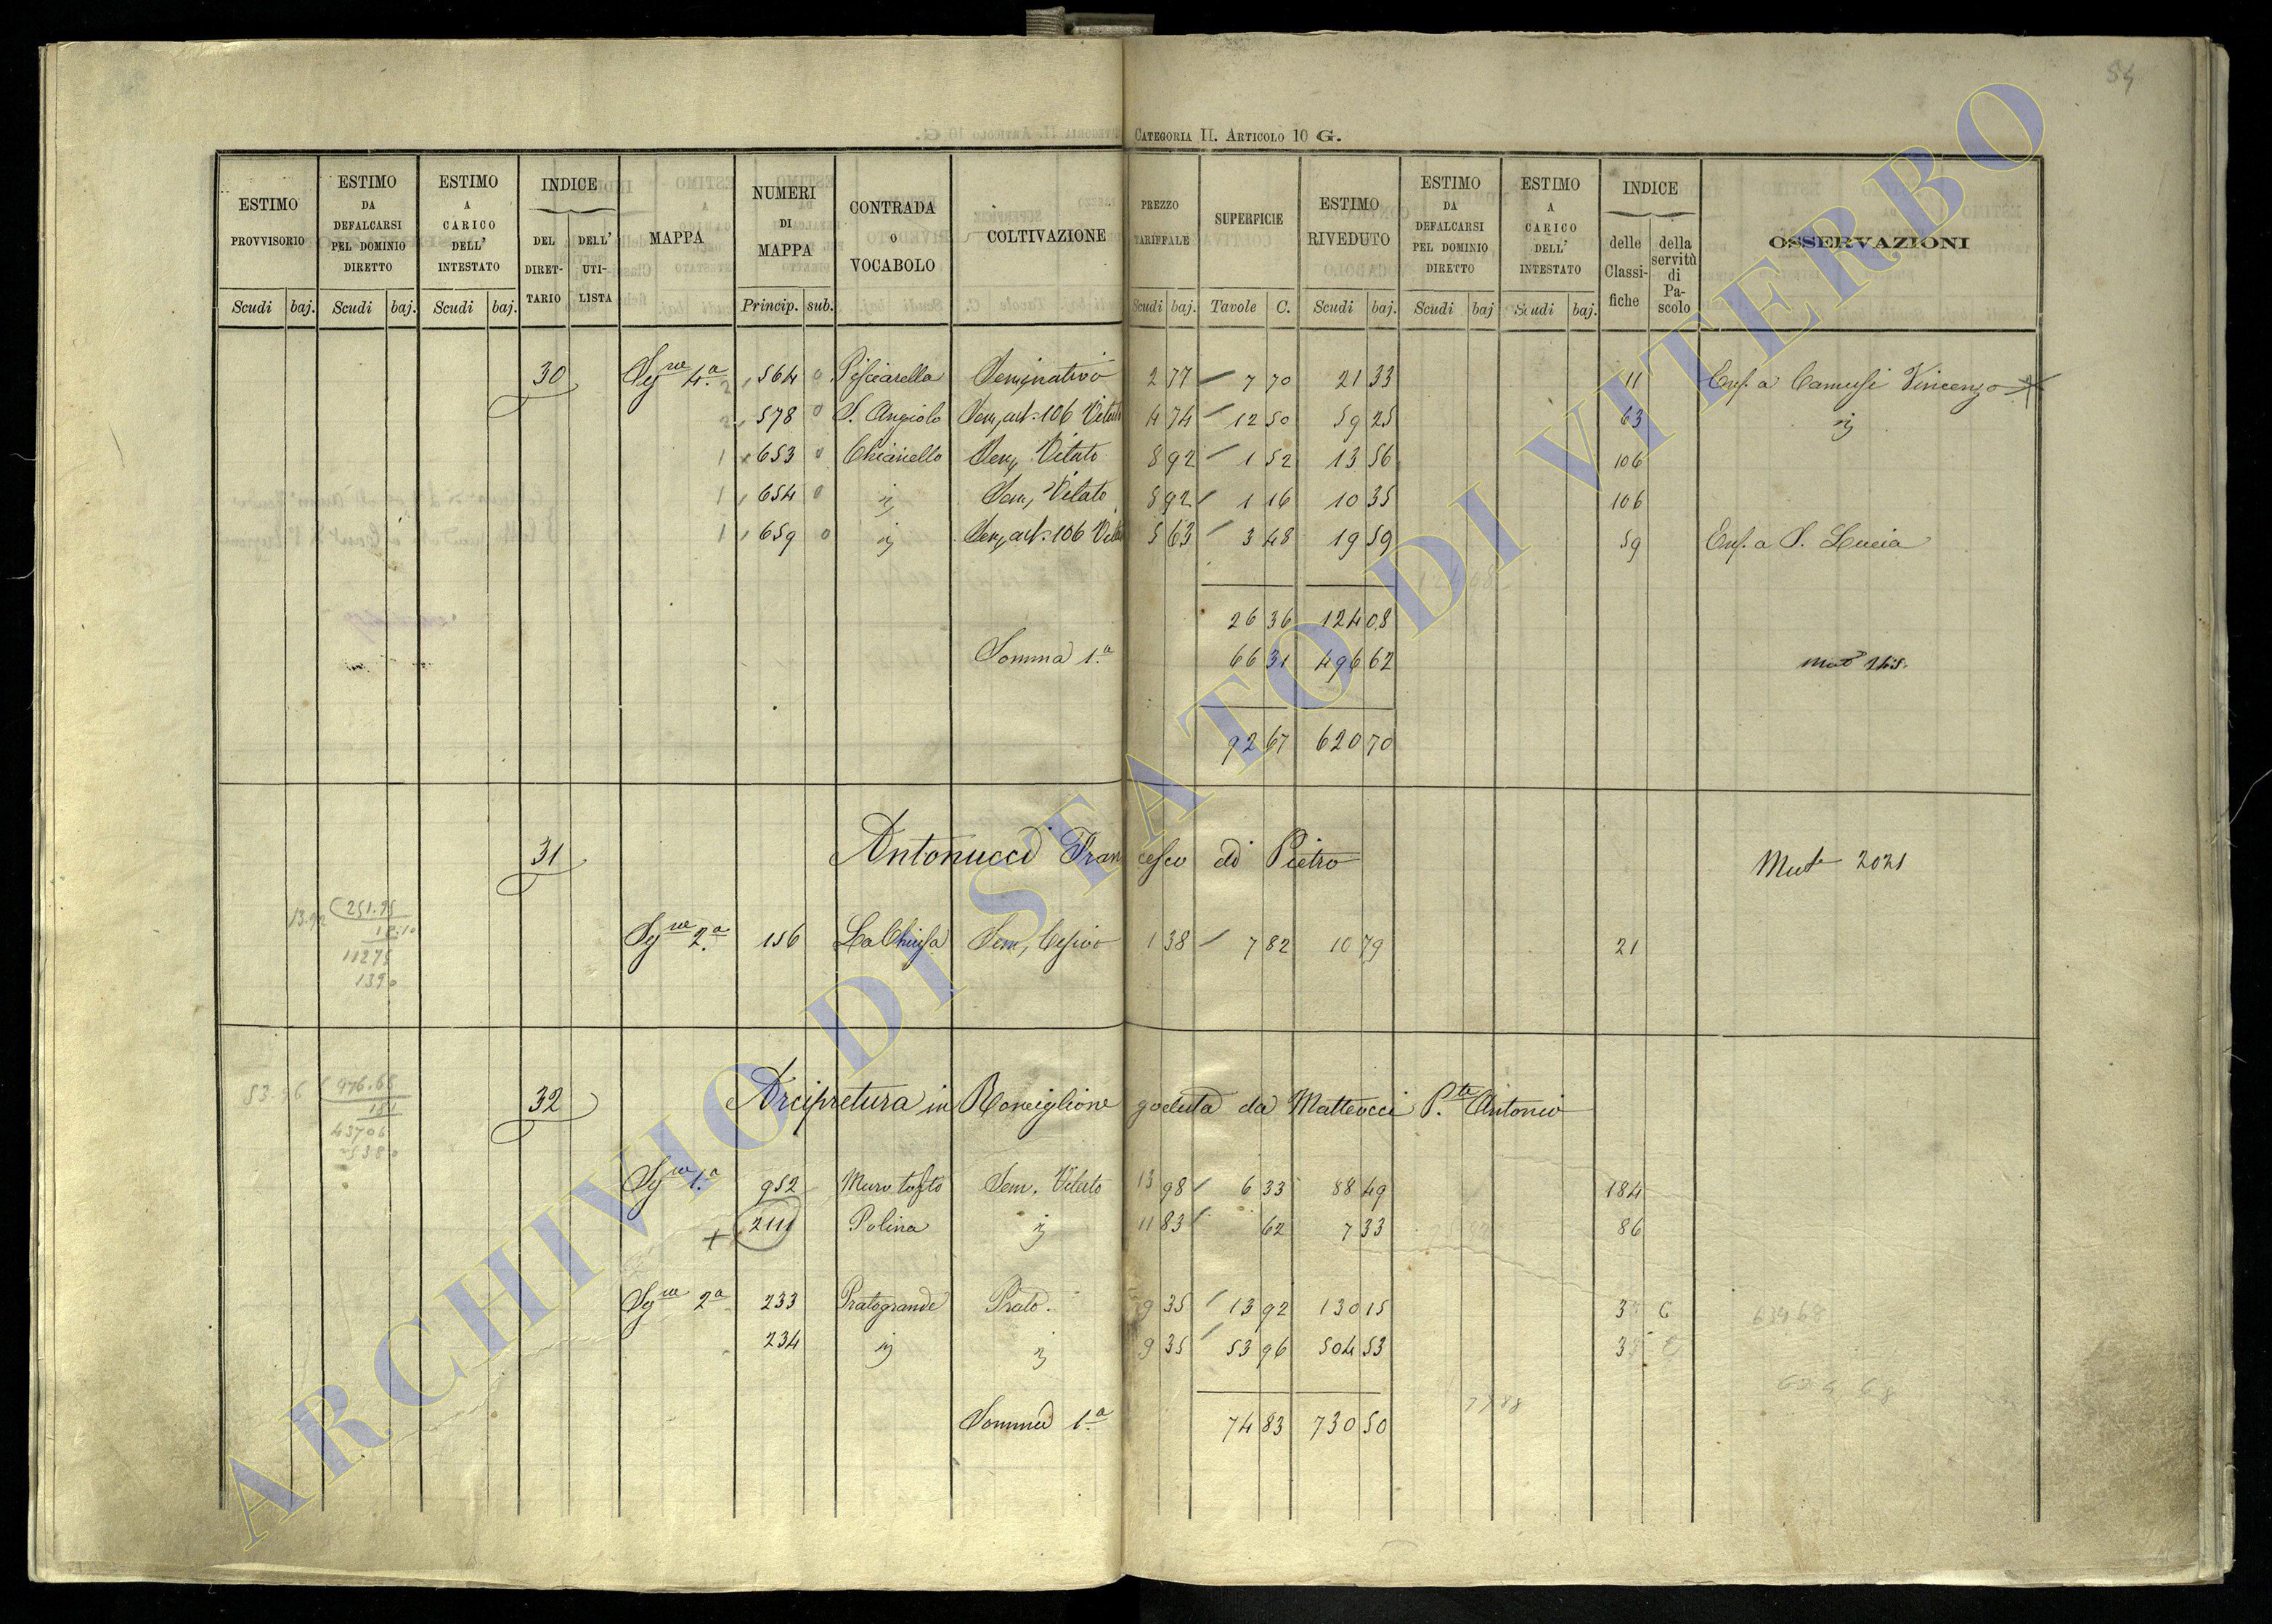 54
CATEGORIA II. ARTICOLO 10 G.
ESTIMO PROVVISORIO
ESTIMO DA DEFALCARSI PEL DOMINIO DIRETTO
ESTIMO A CARICO DELL' INTESTATO
INDICE
DEL DIRETTARIO
DELL' UTILISTA
MAPPA
NUMERI DI MAPPA
CONTRADA O VOCABOLO
COLTIVAZIONE
PREZZO TARIFFALE
SUPERFICIE
ESTIMO RIVEDUTO
ESTIMO DA DEFALCARSI PEL DOMINIO DIRETTO
ESTIMO A CARICO DELL' INTESTATO
INDICE
delle Classifiche
della servitù di Pascolo
OSSERVAZIONI
Scudi baj. Scudi baj. Scudi baj. Princip. sub. Scudi baj. Tavole C. Scudi baj. Scudi baj Scudi baj.
30 Sgne 4.a 564 0 Pisciarella Seminativo 2 77 7 70 21 33 11 Enf. a Camusi Vincenzo
578 0 S. Angiolo Sem, art. 106 Vitato 4 74 12 50 59 25 63
653 0 Chianello Sem, Vitato 8 92 1 52 13 56 106
654 0 Sem, Vitato 8 92 1 16 10 35 106
659 0 Sem, art. 106 5 63 3 48 19 59 59 Enf. a S. Lucia
26 36 124 08
Somma 1.a 66 31 496 62
92 67 620 70
31 Antonucci Francesco di Pietro Mut 2021
13.92 251.95
18.10
11275
1390
Sgne 2.a 156 La Chiusa Sem, Cesivo 1 38 7 82 10 79 21
53.96 976.68
181
43706
32 Arcipretura in Ronciglione goduta da Matteucci P.te Antonio
Sgne 1.a 952 Muro torto Sem. Vitato 13 98 6 33 88 49 184
+ 2111 Polina 11 83 62 7 33 86
Sgne 2a 233 Pratogrande Prato. 9 35 13 92 130 15 C
234 9 35 53 96 504 53
634 68
Somma 1.a 74 83 730 50
ARCHIVIO DI STATO DI VITERBO